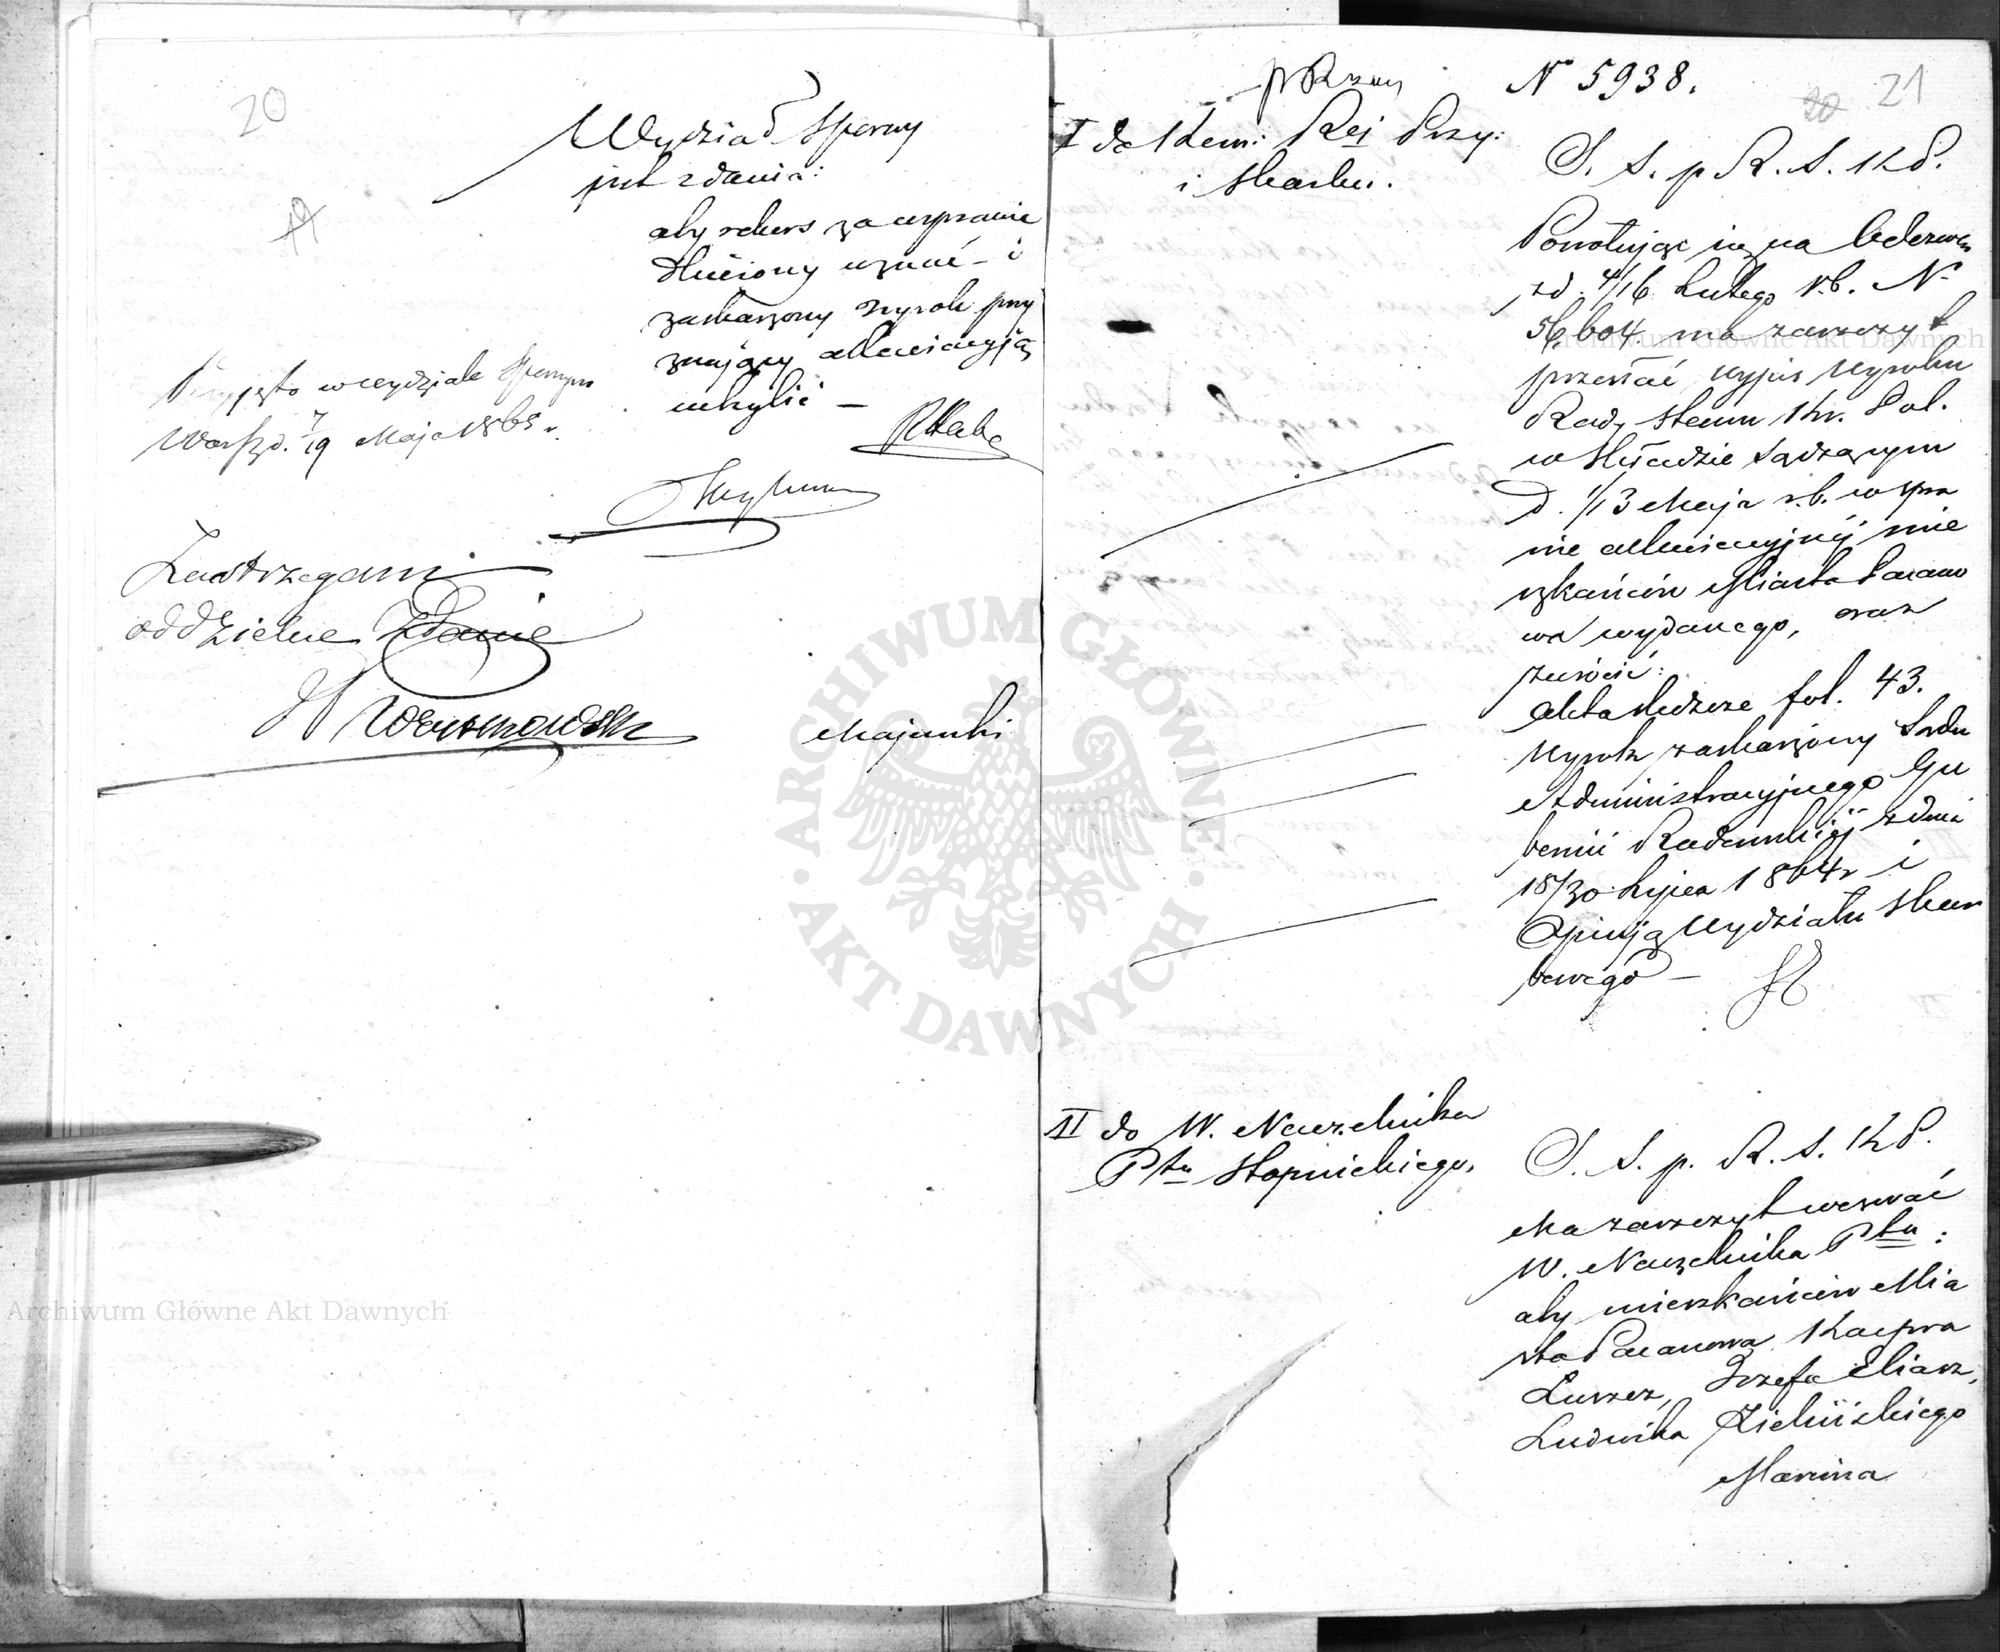 20
Wydział Sporny
jest zdania:
aby rekurs za wyprawie
dliwiony uznać – i
zaskarżony wyrok przy
znający alluwiacyją
uchylić –
Przyjęto w Wydziale Spornym
Warsz. d. 7/19 Maja 1865 r.
Zastrzegam
oddzielne Zdanie
Majewski
N 5938.
20 21
I do Kom: Rzi Przy:
i Skarbu.
S. S. p R. S. K P.
Powołując się na Odezwę
z d. 4/16 Lutego r.b. N
56,604. ma zaszczyt
przesłać wypis Wyroku
Rady Stanu Kr. Pol.
w Składzie Sądzącym
d. 1/13 Maja r.b. w spra
wie alluwiacyjnéj mie
szkańców Miasta Pacano
wa wydanego, oraz
zwrócić:
Akta Skarbowe fol. 43.
Wyrok zaskarżony Sądu
Administracyjnego Gu
bernii Radomskiéj z dnia
18/30 Lipca 1864 r i
Opinją Wydziału Skar
bowego –
II do W. Naczelnika
Ptu Stopnickiego.
S. S. p. R. S. K P.
Ma zaszczyt wezwać
W. Naczelnika Ptu:
aby mieszkańców Mia
sta Pacanowa Kacpra
Józefa Eliasz,
Ludwika Zielińskiego
Marcina
ARCHIWUM GŁÓWNE AKT DAWNYCH
Archiwum Główne Akt Dawnych
Archiwum Główne Akt Dawnych